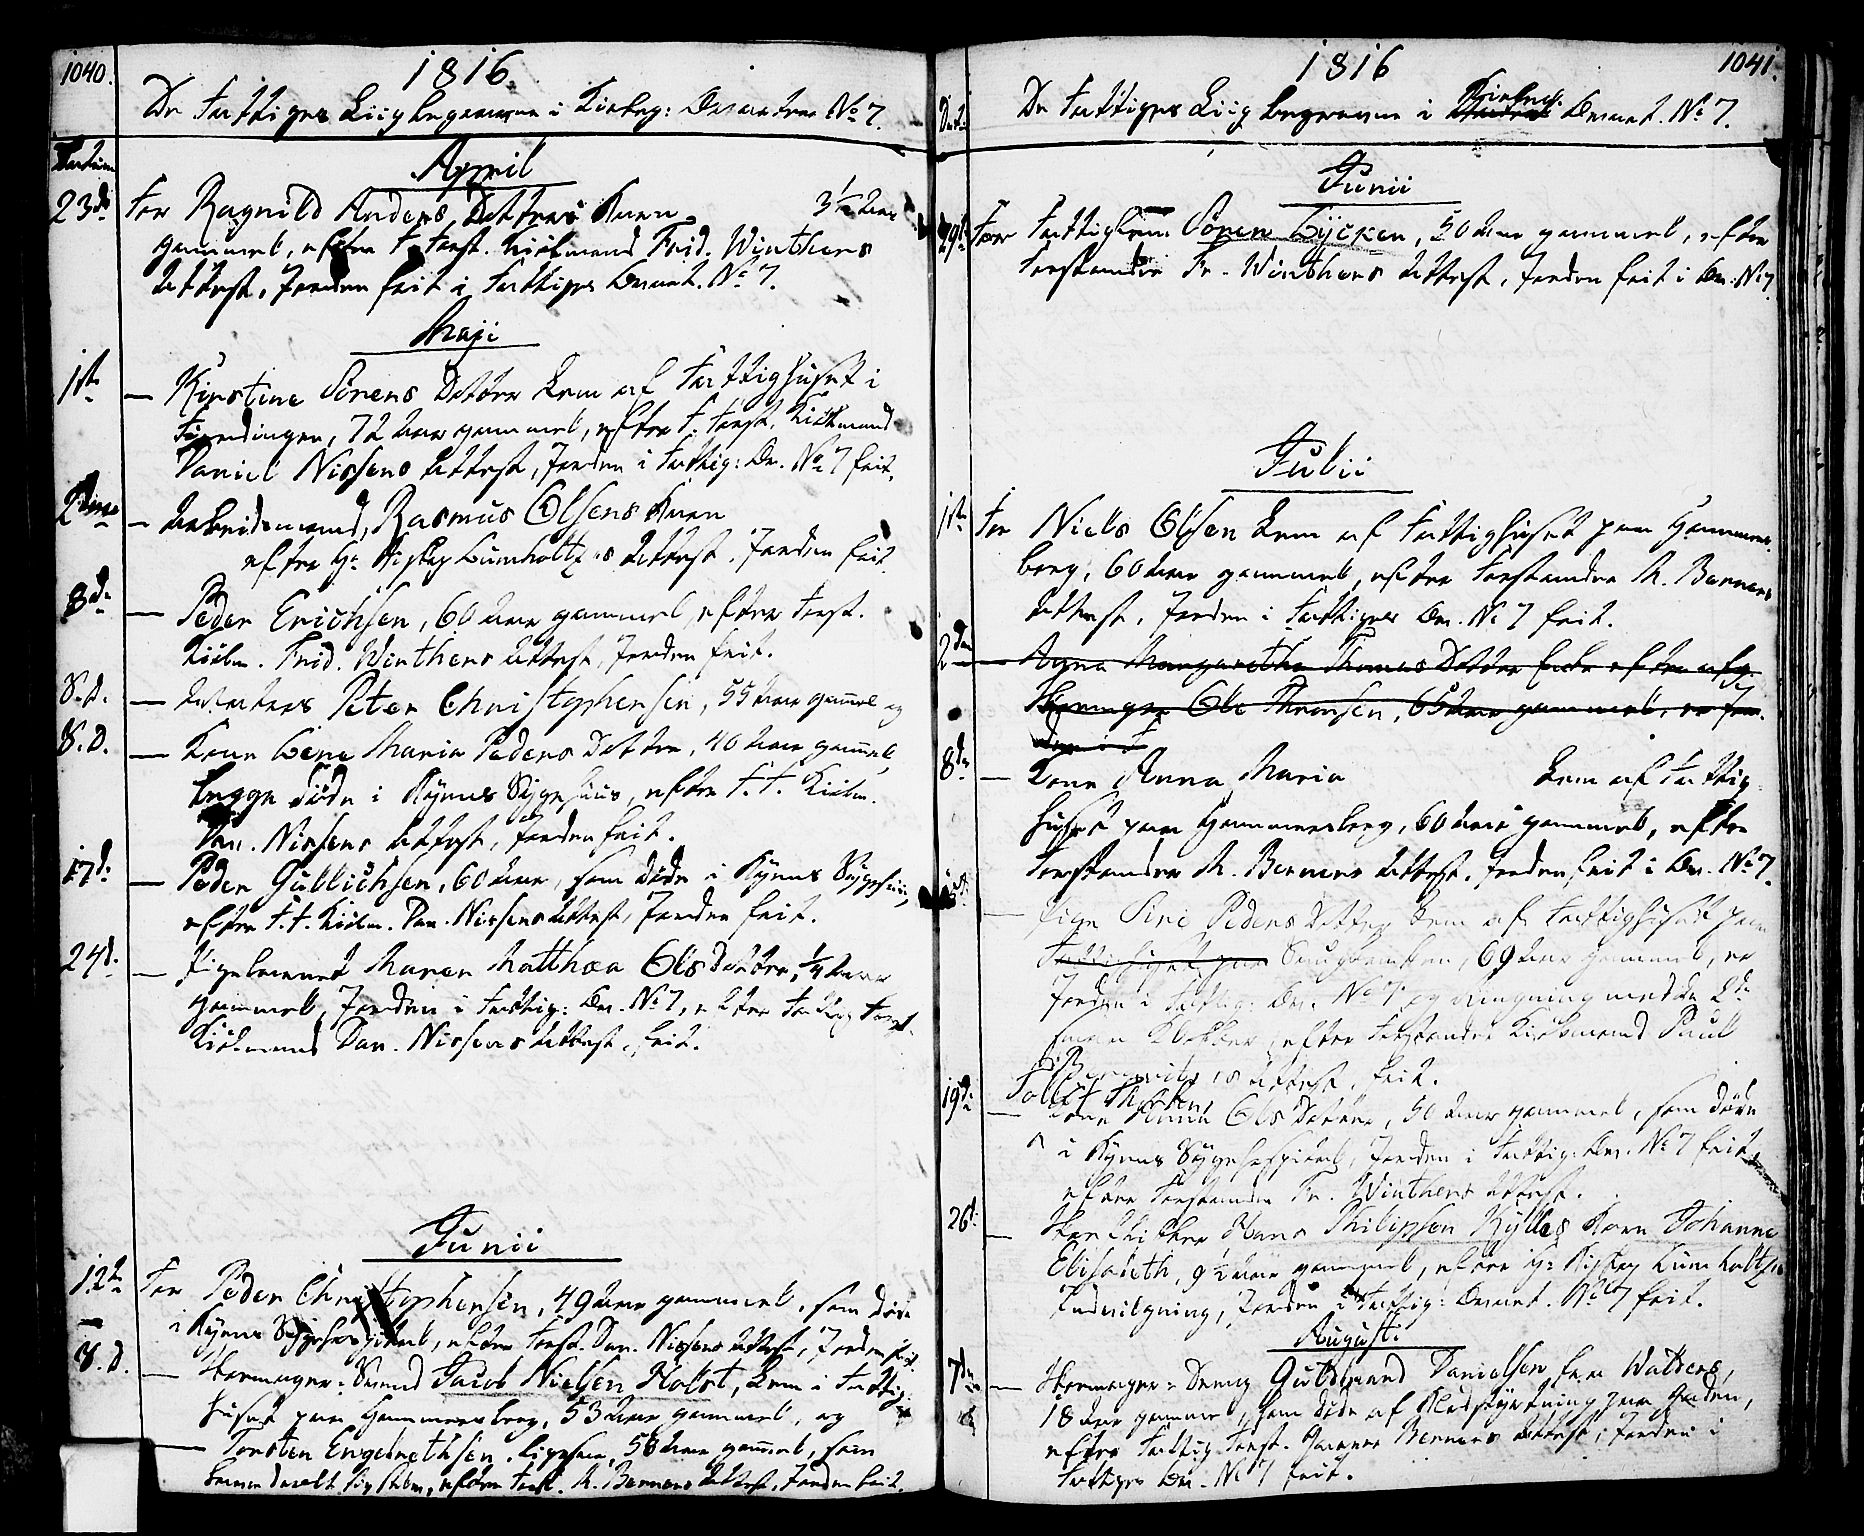 1040.
1816.
De Fattiges Liig begravne i Kirkeg: Qvarteer No 7.
Datum
April
23d: For Ragnild Anders Datters Barn 3½ Aar
gammel, efter F. Forst. Kiøbmand Frid. Winthers
Attest, Jorden frit i Fattiges Qvart. No 7.
Maji
1ste — Kirstine Sörens Datter Lem af Fattighuset i
72 Aar gammel, efter F. Forst. Kiøbmand
Daniel Nissens Attest, Jorden i Fattig: Qv. No 7 frit.
2den — Arbeidsmand Rasmus Olsens Barn
efter Hr. Biskop Lumholtzes Attest. Jorden frit.
8de — Peder Erichsen, 60 Aar gammel, efter Forst.
Kiøbm. Frid. Winthers Attest, Jorden frit.
S. D. — Peter Christophersen, 55 Aar gamel og
S. D. — Kone Lene Maria Peders Datter, 40 Aar gamel,
begge døde i Byens Sÿgehuus, efter F. F. Kiøbm.
Dan. Nissens Attest, Jorden frit.
17d: — Peder Gullichsen, 60 Aar, som døde i Byens Sÿgehuus,
efter F. F. Kiøbm. Dan. Nissens Attest, Jorden frit.
24d. — Pigebarnet Maren Matthea Ols Datter, ¼ Aar
gammel, Jorden i Fattig: Qv. No 7, efter Fattig Forst.
Kiøbmand Dan. Nissens Attest, frit.
Junii
12te For Peder Christophersen, 49 Aar gammel, som døde
i Byens Sÿgehospital, efter Forst. Dan. Nissens Attest, Jorden frit.
S. D. — Skomager-Svend Jacob Nielsen Holst, Lem i Fattig-
huset paa Hammersborg, 53 Aar gammel, og
— Torsten Engebrethsen, ligesaa, 58 Aar gamel, som
efter Forst. M. Berners Attest, Jorden frit.
1816
1041.
Dat:
De Fattiges Liig begravne i Kirkeg: Qvart. No 7.
Junii
29d. For Fattiglem Sören Lÿcken, 50 Aar gammel, efter
Forstander Fr. Winthers Attest, Jorden frit i Qv. No 7.
Julii
1ste For Niels Olsen Lem af Fattighuset paa Hammers-
borg, 60 Aar gammel, efter Forstander M. Berners
Attest, Jorden i Fattiges Qv. No 7 frit.
2den — Margaretha Thomas Datter Enke efter afg.
Ole 65 Aar gammel,
8de — Kone Anna Maria Lem af Fattig-
huset paa Hammersborg, 60 Aar gammel, efter
Forstander M. Berners Attest, Jorden frit i Qv. No 7.
— Pige Siri Peders Datter Lem af Fattighuset paa
Fattighuset paa Saugbanken, 69 Aar gammel,
Jorden i Fattig: Qv. No 7 og Ringning med de 2de
smaa Klokker, efter Forstander Kiøbmand Paul
Attest, frit.
19de — Kone Anna Ols Datter, 50 Aar gammel, som døde
i Byens Sÿgehospital, Jorden i Fattig: Qv. No 7 frit,
efter Forstander Fr. Winthers Attest.
26d: — Hans Philipsen Kÿlles Barn Johanne
Elisabeth, 9½ Aar gammel, efter Hr. Biskop Lumholtzes
Indvilgning, Jorden i Fattig: Qvart. No 7 frit.
Augusti
7de — Skomager-Dreng Guldbrand Danielsen fra Walders,
18 Aar gammel, som døde af Nedstÿrtning paa Gaden,
efter Fattig-Forst. Berners Attest, Jorden i
Fattiges Qv. No 7 frit.